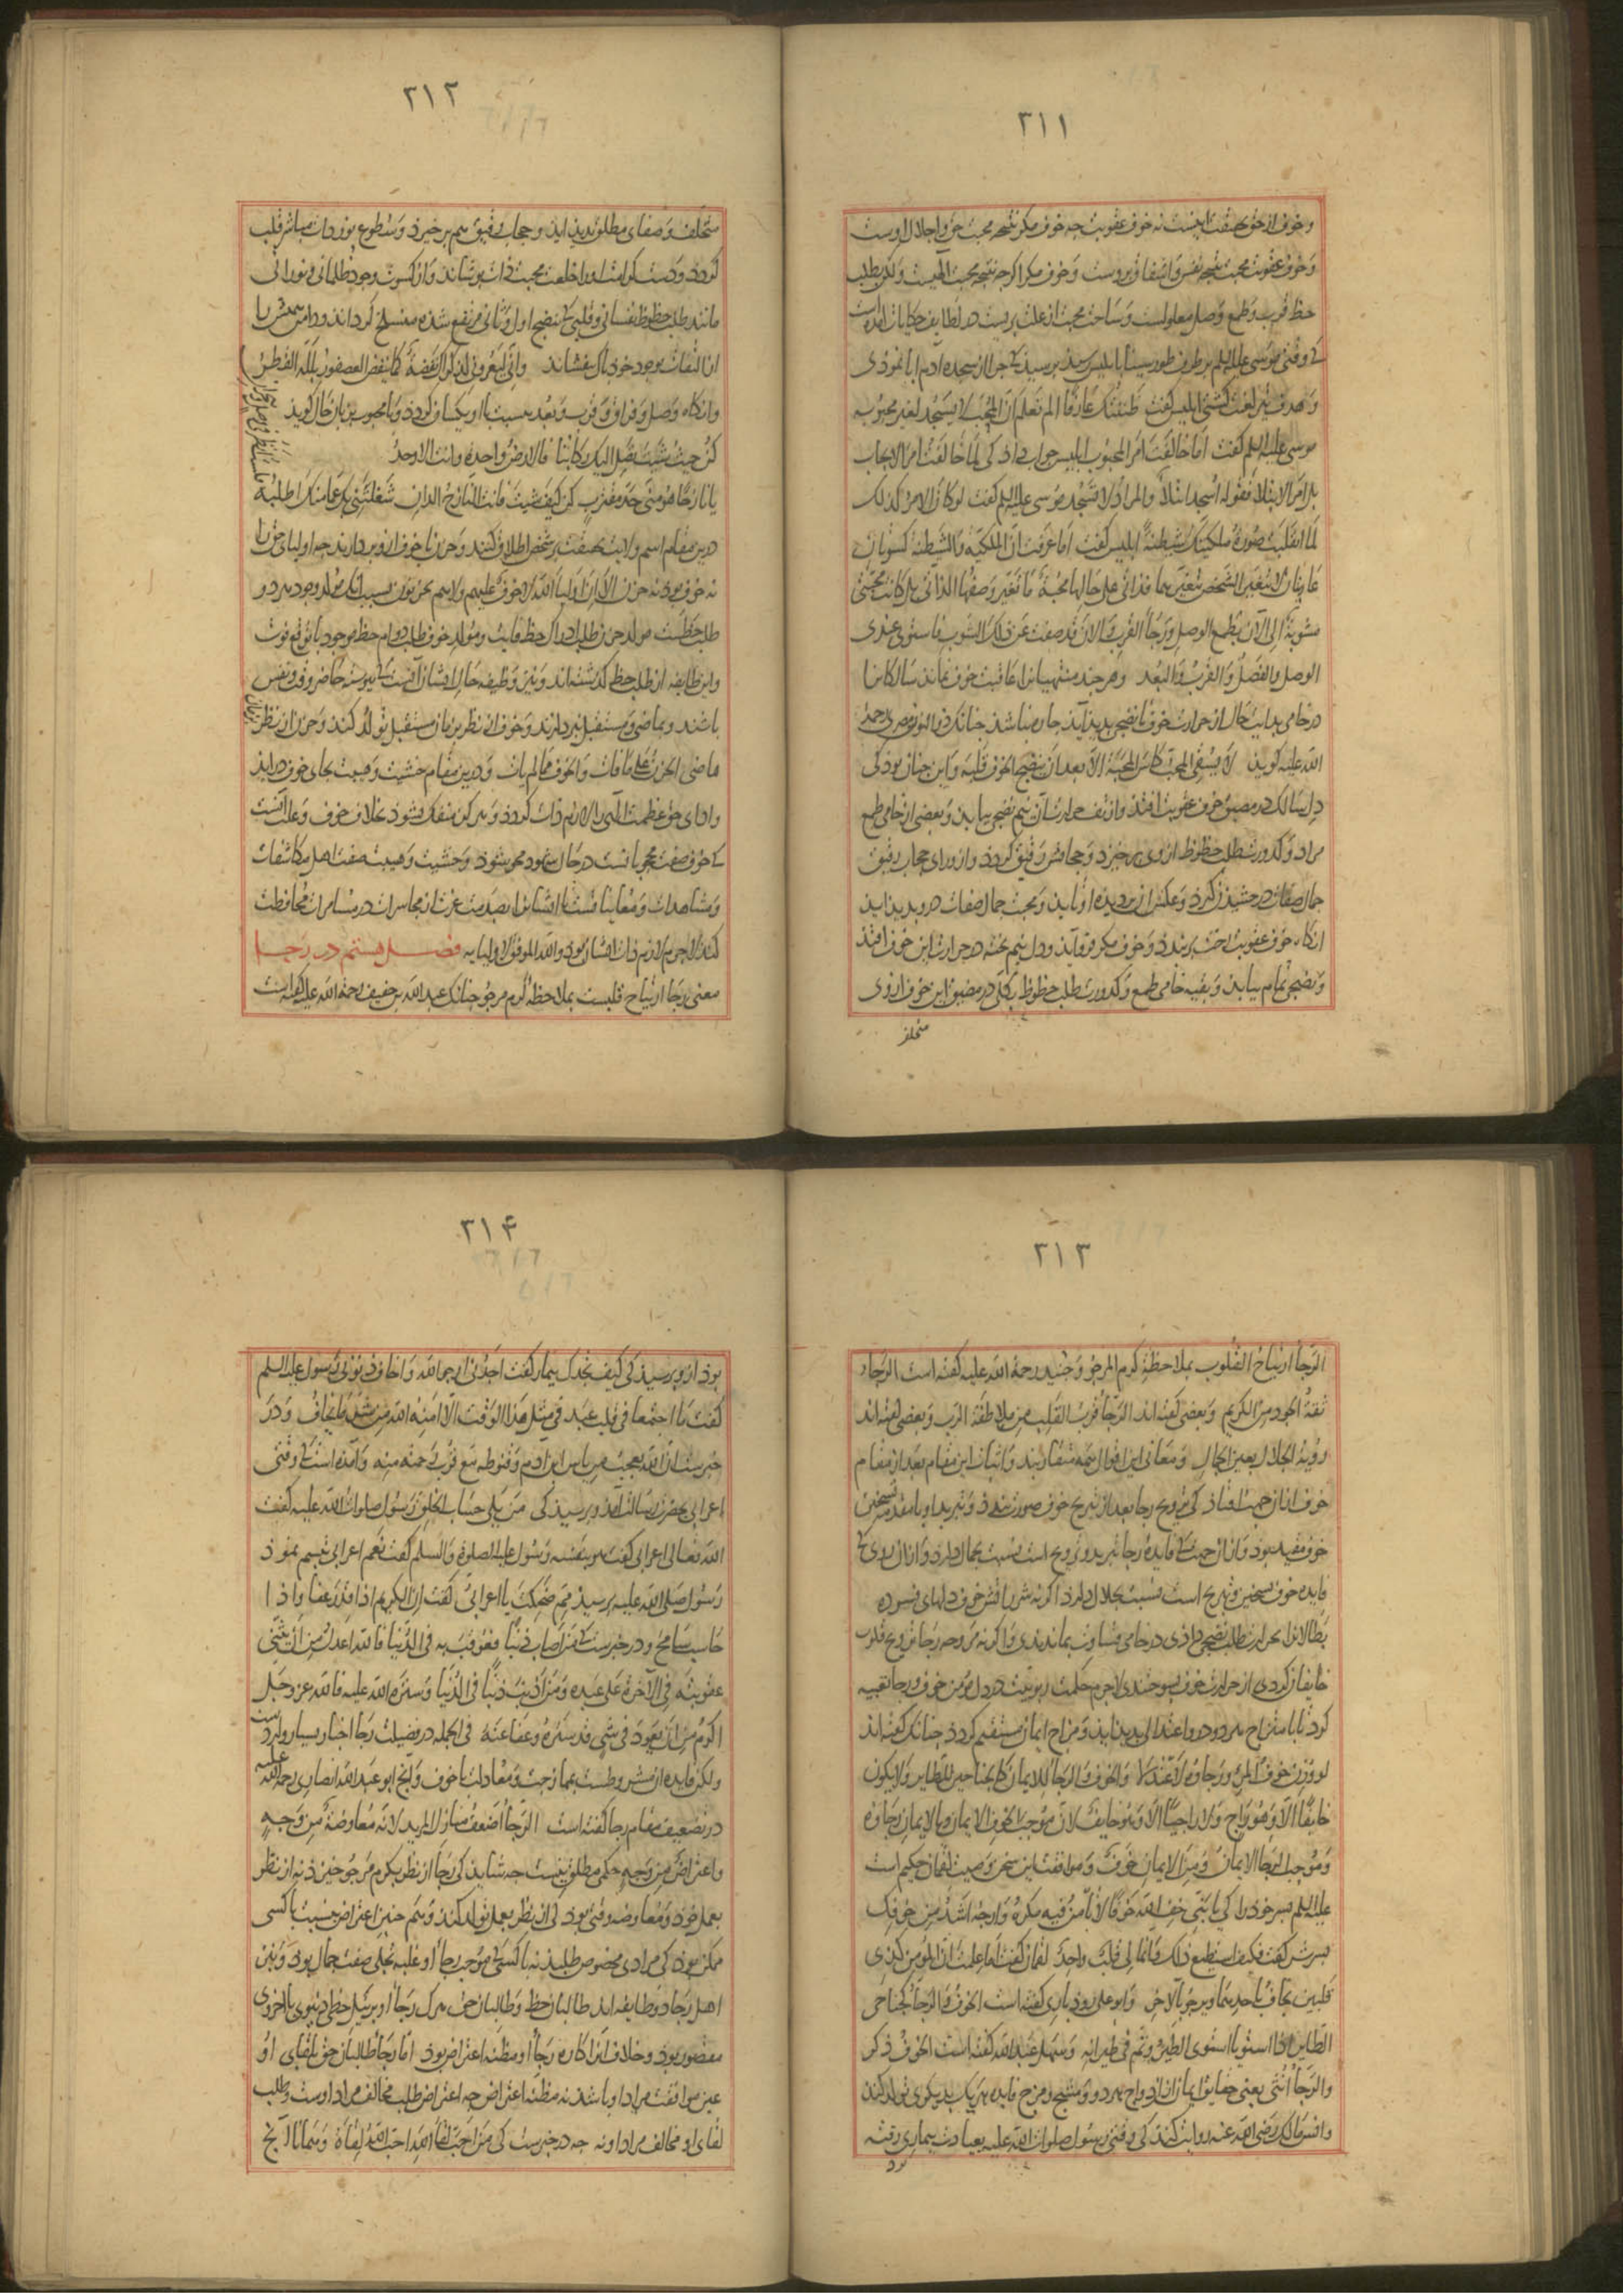 ۳۱۱
و خوف از حق بحقیقت اینست نه خوف عقوبت چه خوف مکر نتیجه محبت حق و اجلال اوست
و خوف عقوبت محبت نتیجه نفس و اشفاق بروست و خوف مکر اگرچه نتیجه محبت الهیست ولکن بطلب
حظ قرب و طمع وصل معلولست و ساحت محبت از علت بریست در لطایف حکایات امده است
کی وقتی موسی علیه السلم بر طرف طور سینا بابلیس رسید پرسید کی چرا از سجده ادم ابا نمودی
و هدف تیر لعنت کشتی ابلیس کفت ظننتک عارفا الم تعلم ان المحب لا یسجد لغیر محبوبه
موسی علیه السلم کفت اما خالفت امر المحبوب ابلیس جواب داد کی لما خالفت امر الایجاب
بل امر الابتلا فقوله اسجد ابتلاء والمراد لا تسجد موسی علیه السلم کفت لو کان الامر کذلک
لما انقلبت صورة ملکیتک شیطنة ابلیس کفت اما عرفت ان الملکیة والشیطنة کسوتان
عاریتان لا یتغیر الشخص بتغیرهما فذاتی علی حالها محبة ما تغیر وصفها الذاتی بل کانت محبتی
مشوبة الی الآن بطمع الوصل و رجاء القرب فالان قد صفت عن ذلک الشوب فاستوی عندی
الوصل والفصل والقرب والبعد و هر چند منتهیانرا عاقبت خوف نماند سالکانرا
در خامی بدایت حال از حرارت خوف تا نضجی پدید آید چاره نباشد چنانک ذوالنون مصری رحمة
الله علیه کوید لا یسقی المحب کاس المحبة الا بعد ان ینضج الخوف قلبه و این چنان بود کی
دل سالک در مضیق خوف عقوبت افتد و از تف حرارت آن نیم نضجی بیابد و بعضی از خامی طمع
مراد و کدورت طلب حظوظ از وی برخیزد و حجابش رقیق کردد و از ورای حجاب رقیق
جمال صفات درخشیدن کیرد و عکس آن بر دیده او تابد و محبت جمال صفات درو پدید اید
انکاه خوف عقوبت رخت بربندد و خوف مکر فرو آید و دل نیم پخته در حرارت این خوف افتد
و نضجی تمام بیابد و بقیه خامی طمع و کدورت طلب حظوظ بکلی در مضیق این خوف از وی
متخلف
۳۱۲
متخلف و صفای مطلق پدید اید و حجاب رقیق هم برخیزد و سطوع نور ذات مباشر قلب
کردد و دست کرامت او را خلعت محبت ذات پوشاند و از کسوت وجود ظلمانی و نورانی
مانند طلب حظوظ نفسانی و قلبی کی بنضج اول و ثانی مرتفع شده منسلخ کرداند و دامن همتش را
از التفات بوجود خود پاک بفشاند و انی لتعرونی لذکراک نفضة کما ینفض العصفور بلله القطر
وانکاه وصل و فراق و قرب و بعد بنسبت با او یکسان کردد و با محبوب بزبان حال کوید
کن حیث شئت تصل الیک رکابنا فالارض واحدة وانت الاوحد
یا نازحا هو منی جد مقترب کن کیف شئت فانت النازح الدان شغلتنی بک عما منک اطلبه
درین مقام اسم ولایت بحقیقت بر شخص اطلاق کنند و حزن با خوف ازو بردارند چه اولیای حق را
نه خوف بود نه حزن الا ان اولیاء الله لا خوف علیهم ولا هم یحزنون بسبب آنک مولد وجود هر دو
طلب حظست مولد حزن طلب ادراک حظ فایت و مولد خوف طلب دوام حظ موجود با توقع فوت
و این طایفه از طلب حظ کذشته اند و نیز وظیفه حال ایشان آنست کی پیوسته حاضر وقت و نفس
باشند و بماضی و مستقبل نپردازند و خوف از نظر بر زمان مستقبل تولد کند و حزن از نظر بزمان
ماضی الحزن علی ما فات و الخوف مما لم یات و درین مقام خشیت و هیبت بجای خوف دراید
و ادای حق عظمت الهی را لازم ذات کردد و هرکز منفک نشود بخلاف خوف و علت آنست
کی خوف صفت محجوبانست در حال شهود محو شود و خشیت و هیبت صفت اهل مکاشفات
و مشاهدات و معاینات است تا ایشانرا بصدمت عزت از مجاسرات در مسامرات محافظت
کند لاجرم لازم ذات ایشان بود والله الموفق لاولیایه فصل هشتم در رجا
معنی رجا ارتیاح قلبست بملاحظه کرم مرجو چنانک عبد الله بن خفیف رحمة الله علیه کفته است
۳۱۳
الرجا ارتیاح القلوب بملاحظة کرم المرجو و جنید رحمة الله علیه کفته است الرجاء
ثقة الجود من الکریم و بعضی کفته اند الرجا قرب القلب من ملاطفة الرب و بعضی کفته اند
رویة الجلال بعین الجمال و معانی این اقوال همه متقاربند و اثبات این مقام بعد از مقام
خوف از ان جهت افتاد کی ترویح رجا بعد از تبریح خوف صورت بندد و تبرید او با مقدمه تسخین
خوف مفید بود و آن از جهت کی فایده رجا تبرید و ترویح است نسبت بجمال دارد و از ان روی کی
فایده خوف تسخین و تبریح است نسبت بجلال دارد اکر نه شرر آتش خوف دلهای فسرده
بطالانرا بحرارت طلب نضجی دادی در خامی قساوت بماندندی و اکر نه مروحه رجا ترویح قلوب
خایفان کردی از حرارت خوف بسوختندی لاجرم حکمت ربوبیت در دل مومن خوف و رجا تعبیه
کرد تا بامتزاج هر دو درو اعتدالی پدید اید و مزاج ایمان مستقیم کردد چنانک کفته اند
لو وزن خوف المرء و رجاؤه لاعتدلا والخوف والرجا للایمان کالجناحین للطایر ولا یکون
خایفا الا و هو راج ولا راجیا الا و هو خایف لان موجب الخوف الایمان و بالایمان رجاؤه
و موجب الرجا الایمان و من الایمان خوف و موافقت این سخن وصیت لقمان حکیم است
علیه السلم پسر خود را کی یا بنی خف الله خوفا لا تامن فیه مکره وارجه اشد من خوفک
پسرش کفت فکیف استطیع ذلک فانما لی قلب واحد لقمان کفت اما علمت ان المؤمن کذی
قلبین یخاف باحدهما و یرجو بالاخر و ابو علی رودباری کفته است الخوف والرجاء کجناحی
الطایر اذا استویا استوی الطیر و تم فی طیرانه و سهل عبد الله کفته است الخوف ذکر
والرجا انثی یعنی حقایق ایمان از ازدواج هر دو و مشیج و مزج فایده هر یک بدیکری تولد کند
و انس مالک رضی الله عنه روایت کند کی وقتی رسول صلوات الله علیه بعیادت بیماری رفته
بود
۳۱۴
بود ازو پرسید کی کیف تجدک بیمار کفت اجدنی ارجو الله و اخاف ذنوبی رسول علیه السلم
کفت ما اجتمعا فی قلب عبد فی مثل هذا الوقت الا امنه الله من شر ما یخاف و در
خبرست ان الله یعجب من یاس ابن ادم و قنوطه مع قرب رحمته منه و آمده است کی وقتی
اعرابی بحضرت رسالت آمد و پرسید کی من یلی حساب الخلق رسول صلوات الله علیه کفت
الله تعالی اعرابی کفت هو بنفسه رسول علیه الصلوة والسلم کفت نعم اعرابی تبسم نمود
رسول صلی الله علیه پرسید مم ضحکت یا اعرابی کفت ان الکریم اذا قدر عفا و اذا
حاسب سامح و در خبرست کی من اصاب ذنبا فعوقب به فی الدنیا فالله اعدل من ان یثنی
عقوبته فی الآخرة علی عبده و من اذنب ذنبا فی الدنیا و ستره الله علیه فالله عز و جل
اکرم من ان یعود فی شیء قد ستره و عفا عنه فی الجمله در فضیلت رجا اخبار بسیار واردست
ولکن فایده ان مشروطست بممازجت و معادلت با خوف و آنچ ابو عبد الله انصاری رحمة الله علیه
در تضعیف مقام رجا کفته است الرجا اضعف منازل المرید لانه معارضة من وجه
و اعتراض من وجه حکمی مطلق نیست چه شاید کی رجا از نظر بکرم مرجو خیزد نه از نظر
بعمل خود و معارضه وقتی بود کی از نظر بعمل تولد کند و هم چنین اعتراض بنسبت با کسی
ممکن بود کی مرادی مخصوص طلبد نه با کسی کی موجب رجا او غلبه تجلی صفت جمال بود و بین
اهل رجا دو طایفه اند طالبان حظ و طالبان حق هرک رجاء او بر نیل حظی دنیوی یا اخروی
مقصور بود و خلاف آنرا کاره رجاء او مظنه اعتراض بود اما رجا طالبان حق بلقای او
عین موافقت مراد او باشد نه مظنه اعتراض چه اعتراض طلب مخالف مراد اوست و طلب
لقای او مخالف مراد او نه چه در خبرست کی من احب لقاء الله احب الله لقاءه و همانا آنچ